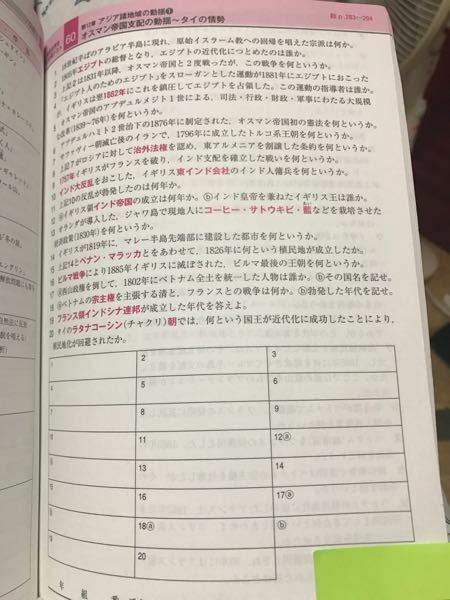 第12章 アジア諸地域の動揺❶
60 オスマン帝国支配の動揺～タイの情勢
p.283～294
1 18世紀半ばのアラビア半島に現れ、原始イスラーム教への回帰を唱えた宗派は何か。
2 1805年エジプトの総督となり、エジプトの近代化につとめたのは誰か。
3 上記2は1831年以降、オスマン帝国と2度戦ったが、この戦争を何というか。
4 「エジプト人のためのエジプト」をスローガンとした運動が1881年にエジプトにおこった
が、イギリスは翌1882年にこれを鎮圧してエジプトを占領した。この運動の指導者は誰か。
5 オスマン帝国のアブデュルメジト1世による、司法・行政・財政・軍事にわたる大規模
な改革(1839～76年)を何というか。
6 アブデュルハミト2世治下の1876年に制定された、オスマン帝国初の憲法を何というか。
7 サファヴィー朝滅亡後のイランで、1796年に成立したトルコ系王朝を何というか。
8 上記7がロシアに対して治外法権を認め、東アルメニアを割譲した条約を何というか。
9 1757年イギリスがフランスを破り、インド支配を確立した戦いを何というか。
10 インド大反乱をおこした、イギリス東インド会社のインド人傭兵を何というか。
11 上記10の反乱が勃発したのは何年か。
12 ⓐイギリス領インド帝国の成立は何年か。 ⓑインド皇帝を兼ねたイギリス王は誰か。
13 オランダが導入した、ジャワ島で現地人にコーヒー・サトウキビ・藍などを栽培させた
経済政策(1830年)を何というか。
14 イギリスが1819年に、マレー半島先端部に建設した都市を何というか。
15 上記14とペナン・マラッカとをあわせて、1826年に何という植民地が成立したか。
16 ビルマ戦争により1885年イギリスに滅ぼされた、ビルマ最後の王朝を何というか。
17 ⓐ西山政権を倒して、1802年にベトナム全土を統一した人物は誰か。 ⓑその国名を記せ。
18 ⓐベトナムの宗主権を主張する清と、フランスとの戦争は何か。 ⓑ勃発した年代を記せ。
19 フランス領インドシナ連邦が成立した年代を答えよ。
20 タイのラタナコーシン(チャクリ)朝では、何という国王が近代化に成功したことにより、
植民地化が回避されたか。
1 2 3
4 5 6
7 8 9
10 11 12ⓐ
ⓑ 13 14
15 16 17ⓐ
ⓑ 18ⓐ ⓑ
19 20
年 組 番